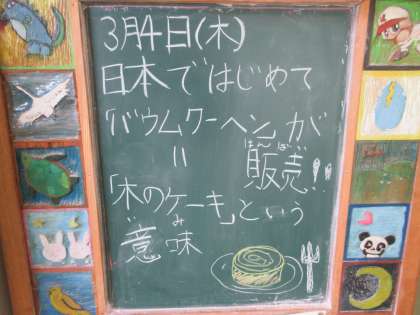 3月4日(木)
日本ではじめて
「バウムクーヘン」が
=
はんばい
販売!!
「木のケーキ」という
いみ
意味